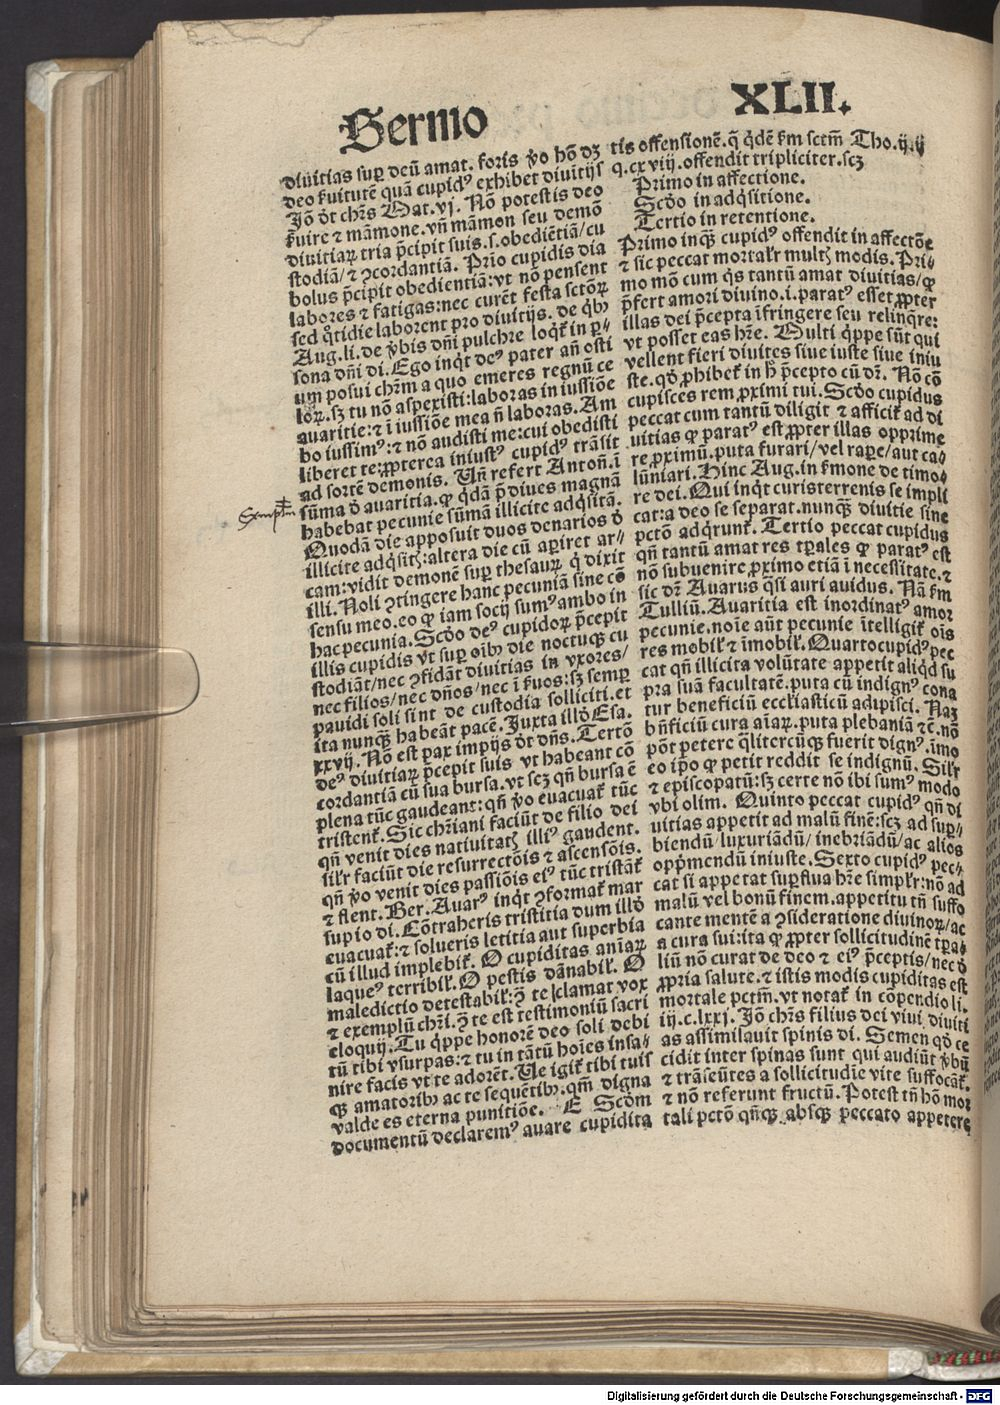 Sermo XLII.
diuitias suꝑ deū amat. foris ꝟo hō dꝫ
deo ẜuitutē quā cupidꝰ exhibet diuitijs
Jō ꝺt chr̄s Mat. vj. Nō potestis deo
ẜuire ⁊ māmone. vn̄ māmon seu demō
diuitiaꝝ tria p̄cipit suis. s. obediētiā/ cu
stodiā/ ⁊ ꝯcordantiā. Prīo cupidis dia
bolus p̄cipit obedientiā: vt nō pensent
labores ⁊ fatigas: nec curēt festa sctōꝝ
sed qͦtidie laborent pro diuitijs. de qͥbꝫ
Aug. li. de ꝟbis dn̄i pulchre loqͥt̄ in ꝑ-
sona dn̄i di. Ego inqͥt deꝰ pater an̄ osti
um posui chr̄m a quo emeres regnū ce
loꝝ. sꝫ tu nō aspexisti: laboras in iussiōe
auaritie: ⁊ ī iussiōe mea n̄ laboras. Am
bo iussimꝰ: ⁊ nō audisti me: cui obedisti
liberet te: ꝓpterea iniustꝰ cupidꝰ trāsit
ad sortē demonis. Vn̄ refert Antoñ. ī
sūma ꝺ̓ auaritia. ꝙ qͥdā p̄diues magnā
habebat pecunie sūmā illicite adqͥsitā.
Quodā die apposuit duos denarios ꝺ̓
illicite adqͥsitꝭ: altera die cū aꝑiret ar-
cam: vidit demonē suꝑ thesauꝝ qͥ dixit
illi. Noli ꝯtingere hanc pecuniā sine cō
sensu meo. eo ꝙ iam socij sumꝰ ambo in
hac pecunia. Scd̓o deꝰ cupidoꝝ p̄cepit
illis cupidis vt suꝑ oībꝫ die noctuqꝫ cu
stodiāt/ nec ꝯfidāt diuitias in vxores/
nec filios/ nec dn̄os/ nec ī ẜuos: sꝫ semꝑ
pauidi soli sint de custodia solliciti. et
ita nunqꝫ habeāt pacē. Juxta illd̓ Esa.
xxvij. Nō est pax impijs ꝺt dn̄s. Tertō
deꝰ diuitiaꝝ p̄cepit suis vt habeant cō
cordantiā cū sua bursa. vt scꝫ qn̄ bursa ē
plena tūc gaudeant: qn̄ ꝟo euacuat̄ tūc
tristent̄. Sic chr̄iani faciūt de filio dei
qn̄ venit dies natiuitatꝭ illiꝰ gaudent.
sil̄r faciūt die resurrectōis ⁊ ascensōis.
qn̄ ꝟo venit dies passiōis eiꝰ tūc tristāt̄
⁊ flent. Ber. Auarꝰ inqͥt ꝯformat̄ mar
supio di. Cōtraheris tristitia dum illd̓
euacuat̄: ⁊ solueris letitia aut superbia
cū illud implebit̄. O cupiditas aniaꝝ
laqueꝰ terribil̓. O pestis dānabil̓. O
maledictio detestabil̓: ꝯ̄ te clamat vox
⁊ exemplū chr̄i. ꝯ̄ te est testimoniū sacri
eloquij. Tu qͥppe honorē deo soli debi
tū tibi vsurpas: ⁊ tu in tātū hoīes insa-
nire facis vt te adorēt. Ue igit̄ tibi tuis
qꝫ amatoribꝫ ac te sequētibꝫ. qm̄ digna
valde es eterna punitiōe. E Scd̓m
documentū declaremꝰ auare cupidita
tis offensionē. q̄ qͥdē ẜm sctm̄ Tho. ij. ij
q. cxviij. offendit tripliciter. scꝫ
Primo in affectione.
Scd̓o in adqͥsitione.
Tertio in retentione.
Primo inqꝫ cupidꝰ offendit in affectōe
⁊ sic peccat mortal̓r multꝭ modis. Pri-
mo mō cum qͥs tantū amat diuitias/ ꝙ
p̄fert amori diuino. i. paratꝰ esset ꝓpter
illas dei p̄cepta īfringere seu relinqͥre:
vt posset eas hr̄e. Multi qͥppe sūt qui
vellent fieri diuites siue iuste siue iniu
ste. qd̓ ꝓhibet̄ in h̓ p̄cepto cū dr̄. Nō cō
cupisces rem ꝓximi tui. Scd̓o cupidus
peccat cum tantū diligit ⁊ afficit̄ ad di
uitias ꝙ paratꝰ est ꝓpter illas opprime
re ꝓximū. puta furari/ vel raꝑe/ aut ca-
lūniari. Hinc Aug. in ẜmone de timo-
re dei. Qui inqͥt curis terrenis se impli
cat: a deo se separat. nunqꝫ diuitie sine
pctō adqͥrunt̄. Tertio peccat cupidus
qn̄ tantū amat res tꝑales ꝙ paratꝰ est
nō subuenire ꝓximo etiā ī necessitate. ⁊
sic dr̄ Auarus qͥsi auri auidus. Nā ẜm
Tulliū. Auaritia est inordinatꝰ amor
pecunie. noīe aūt pecunie ītelligit̄ oīs
res mobil̓ ⁊ īmobil̓. Quarto cupidꝰ pec
cat qn̄ illicita volūtate appetit aliqd̓ su
pra suā facultatē. puta cū indignꝰ cona
tur beneficiū ecclesiasticū adipisci. Naꝫ
bn̄ficiū cura aīaꝝ. puta plebaniā ⁊c̄. nō
pōt petere qͣlitercūqꝫ fuerit dignꝰ. īmo
eo ip̄o ꝙ petit reddit se indignū. Sil̄r
⁊ episcopatū: sꝫ certe nō ibi sumꝰ modo
vbi olim. Quinto peccat cupidꝰ qn̄ di
uitias appetit ad malū finē: scꝫ ad suꝑ-
biendū/ luxuriādū/ inebriādū/ ac alios
opp̄mendū iniuste. Sexto cupidꝰ pec-
cat si appetat suꝑflua hr̄e simpl̓r: nō ad
malū vel bonū finem. appetitu tn̄ suffo
cante mentē a ꝯsideratione diuinoꝝ/ ac
a cura sui: ita ꝙ ꝓpter sollicitudinē tꝑa-
liū nō curat de deo ⁊ eiꝰ p̄ceptis/ nec ꝺ̓
ꝓpria salute. ⁊ istis modis cupiditas est
mortale pctm̄. vt notat̄ in cōpendio li.
iij. c. lxxj. Jō chr̄s filius dei viui diuiti
as assimilauit spinis di. Semen qd̓ ce
cidit inter spinas sunt qui audiūt ꝟbū
⁊ trāseūtes a sollicitudīe vite suffocāt̄.
⁊ nō referunt fructū. Potest tn̄ hō mor
tali pctō qn̄qꝫ absqꝫ peccato appetere
Digitalisierung gefördert durch die Deutsche Forschungsgemeinschaft - DFG